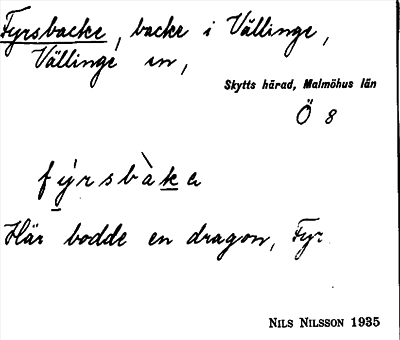 Fyrsbacke, backe i Vällinge,
Vällinge en,
Skytts härad, Malmöhus län
Ö 8
fýrsbàka
Här bodde en dragon, Fyr.
NILS NILSSON 1935